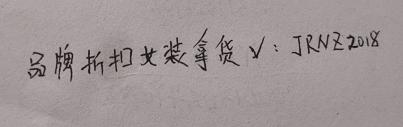 品牌折扣女装拿货V：JRNZ2018